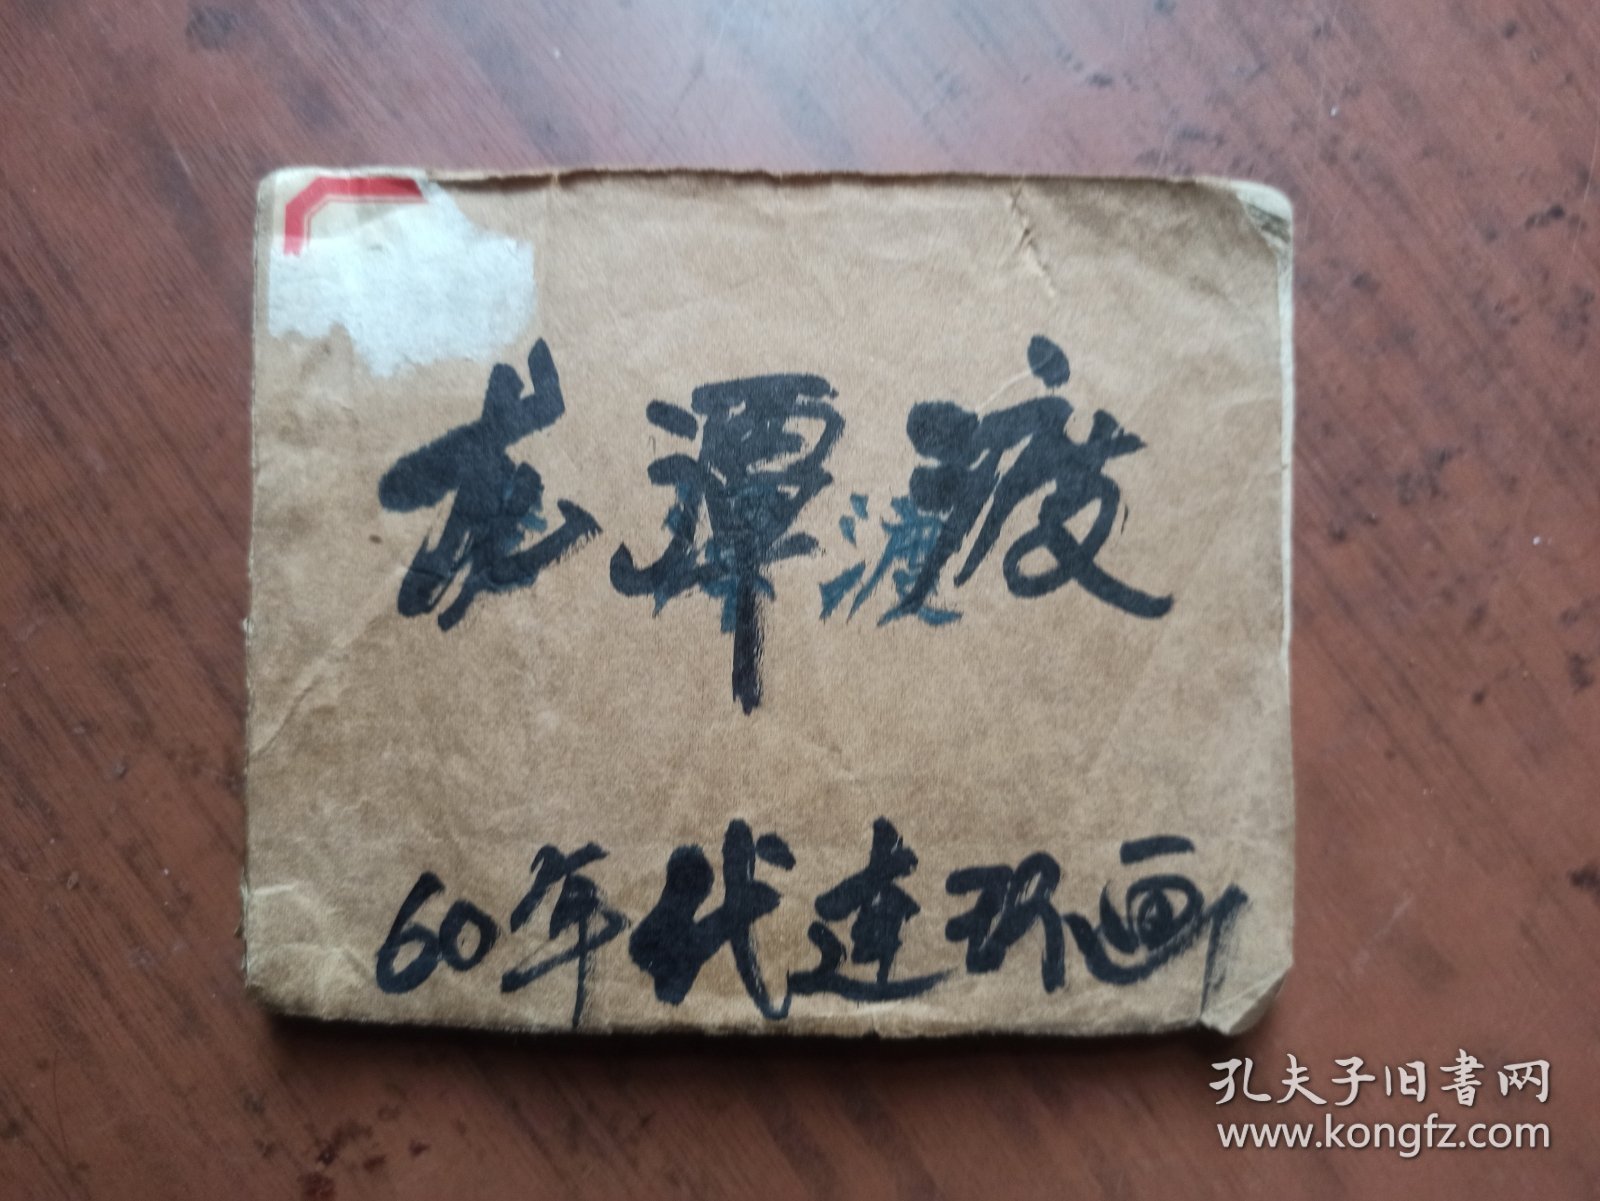 龙潭渡
60年代连环画
孔夫子旧书网
www.kongfz.com